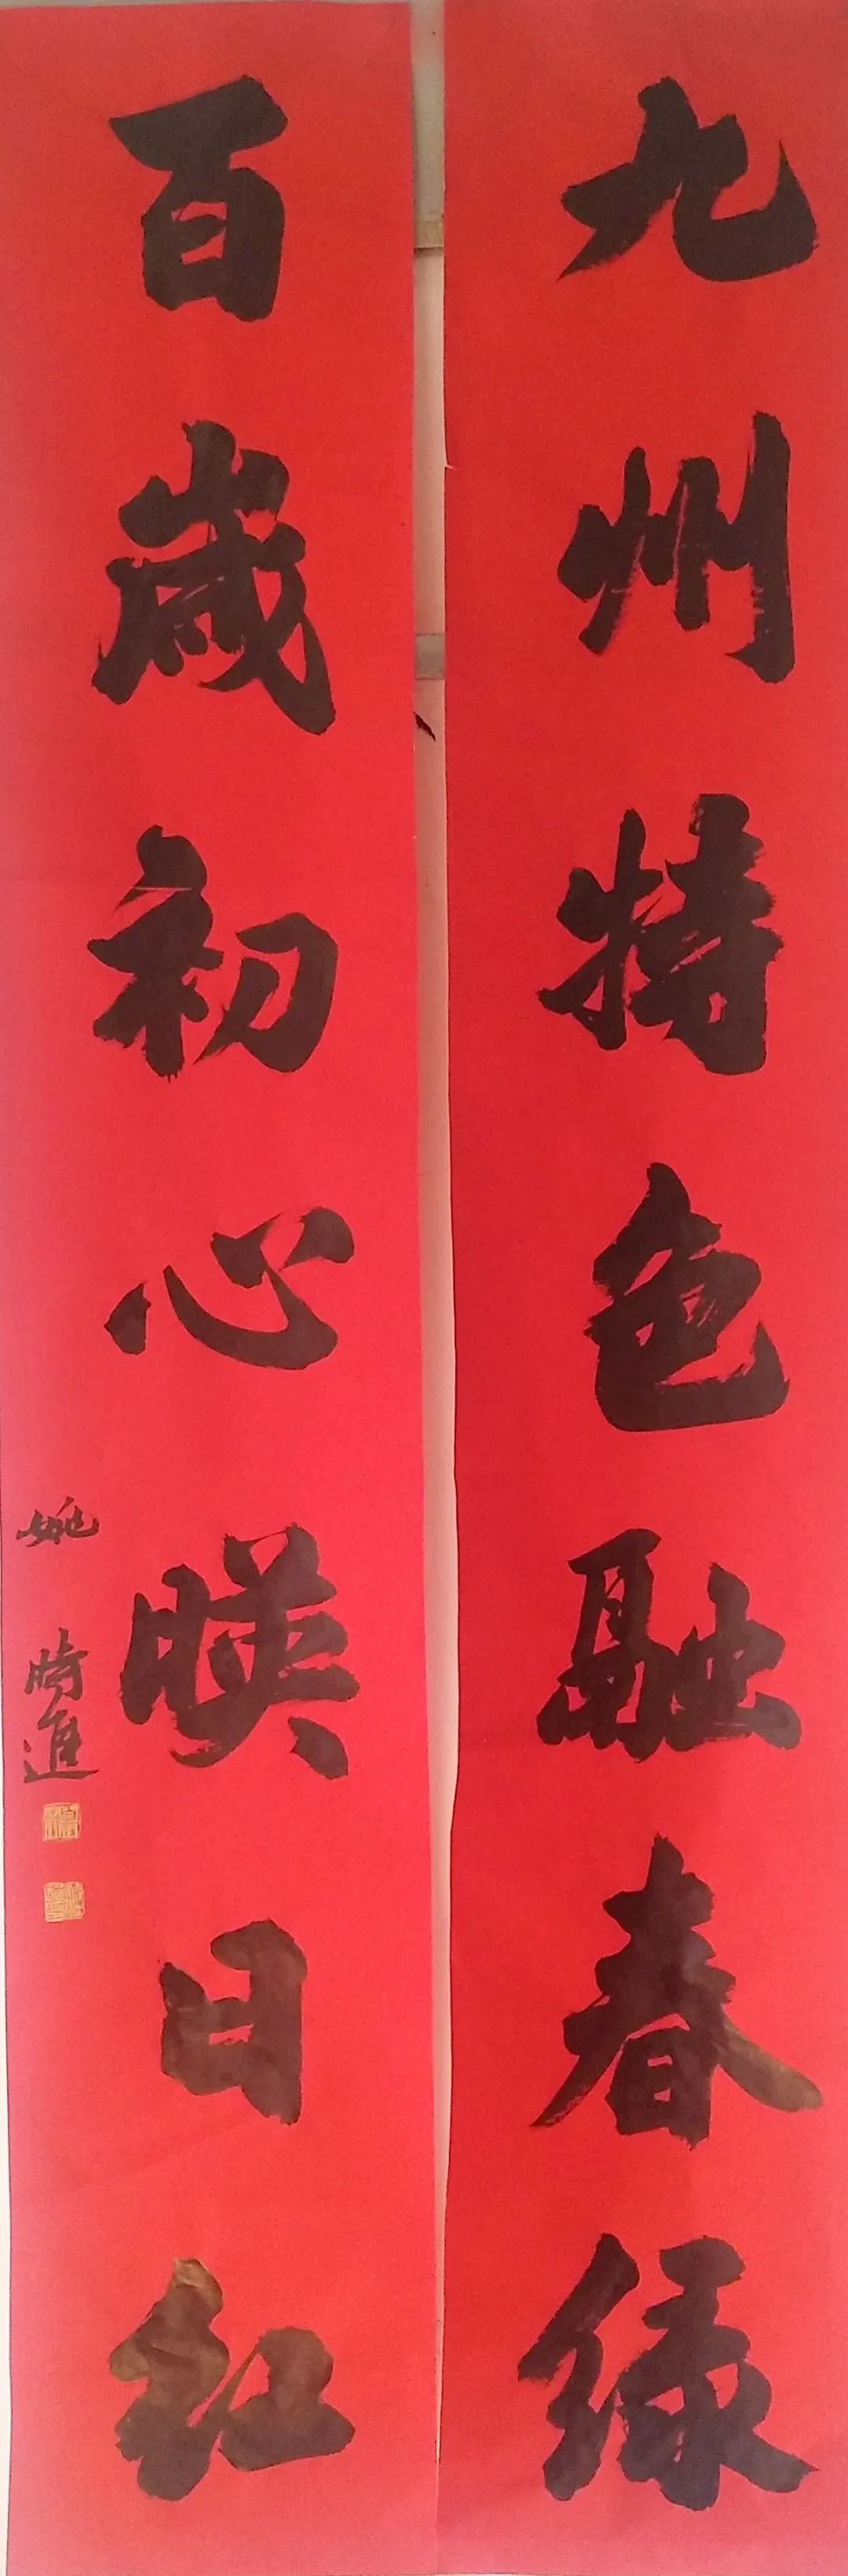 九州特色融春绿
百歲初心暎日红
姚時進